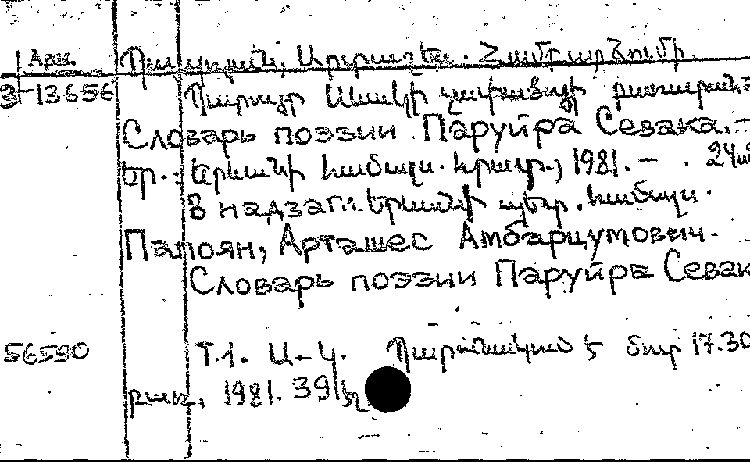 Арм. Պապոյան, Արտաշես Համբարձումի.
Յ-13656 Պարույր Սևակի չափածոյի բառարան =
Словарь поэзии Паруйра Севака. -
Եր.: Երևանի համալս. հրատ., 1981. - . 24
В надзаг. Երևանի պետ. համալս.
Папоян, Арташес Амбарцумович.
Словарь поэзии Паруйра Севак
56590 Т.1. Ա-Կ. Պարունակում է մոտ 17.30
բառ, 1981. 391 էջ